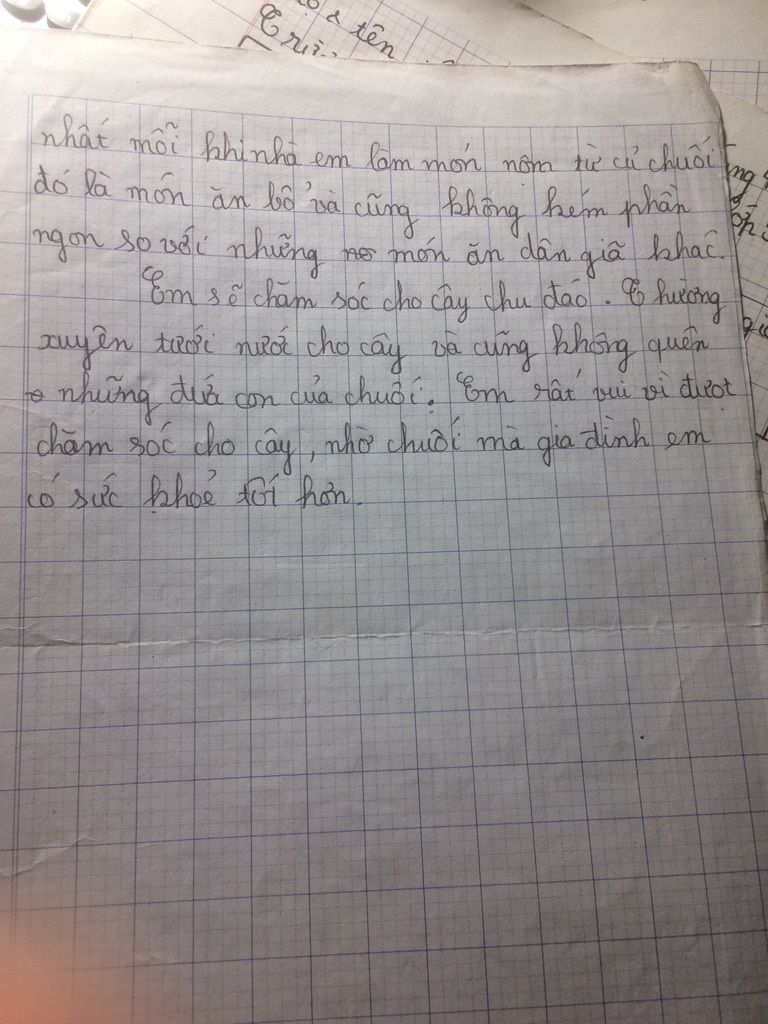 ọ & tên
nhất mỗi khi nhà em làm món nộm từ củ chuối
đó là món ăn bổ và cũng không kém phần
ngon so với những mo món ăn dân giã khác.
Em sẽ chăm sóc cho cây chu đáo. Thường
xuyên tưới nước cho cây và cũng không quên
những đứa con của chuối. Em rất vui vì được
chăm sóc cho cây, nhờ chuối mà gia đình em
có sức khoẻ tốt hơn.